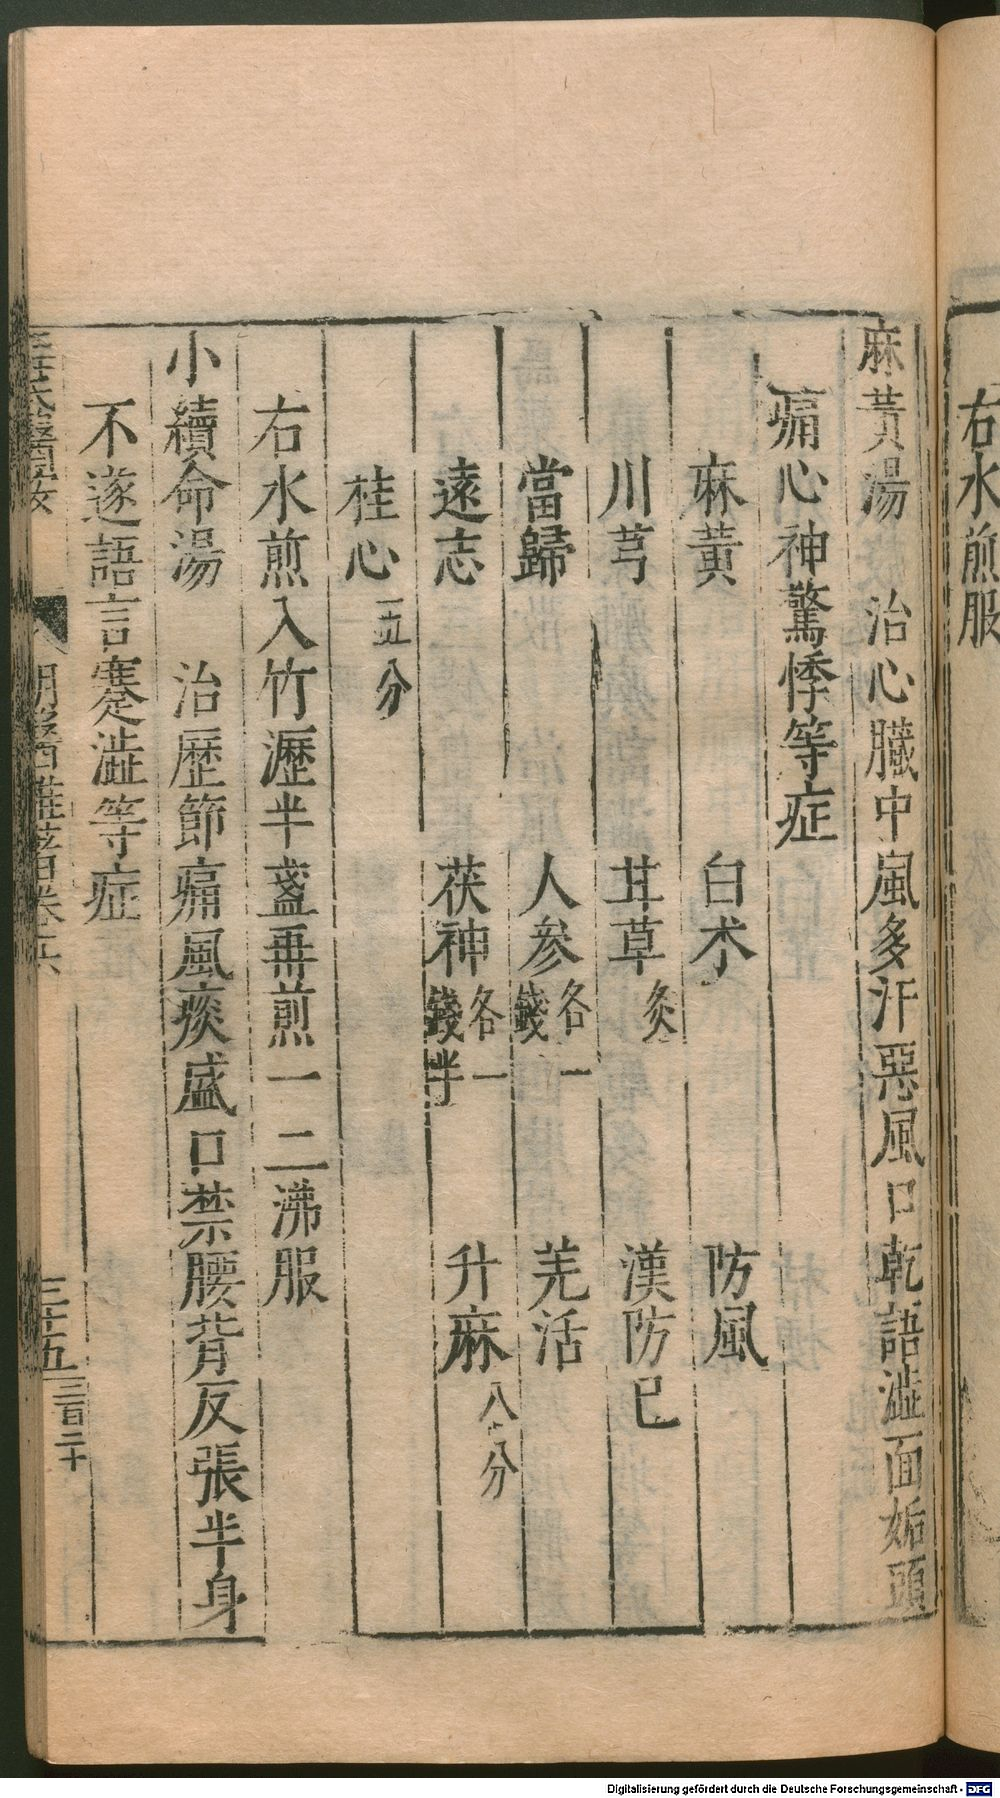 右水煎服
麻黃湯　治心臟中風多汗惡風口乾語澁面姤頭
痛心神驚悸等症
麻黃　白朮　防風
川芎　甘草炙　漢防已
當歸　人参各一錢　羌活
遠志　茯神各一錢半　升麻八分
桂心五分
右水煎入竹瀝半盞再煎一二沸服
小續命湯　治歷節痛風痰盛口禁腰背反張半身
不遂語言蹇澁等症
三十五
三百二十
Digitalisierung gefördert durch die Deutsche Forschungsgemeinschaft - DFG